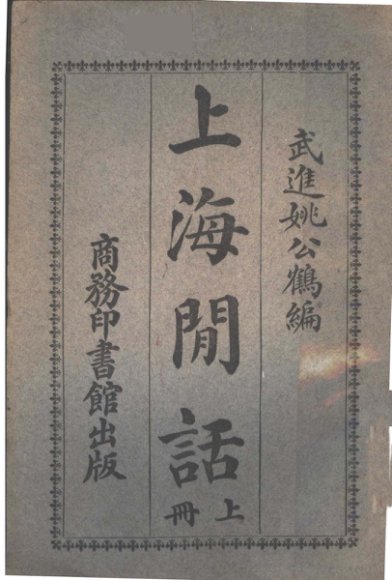 武進姚公鶴編
上海閒話
上冊
商務印書館出版